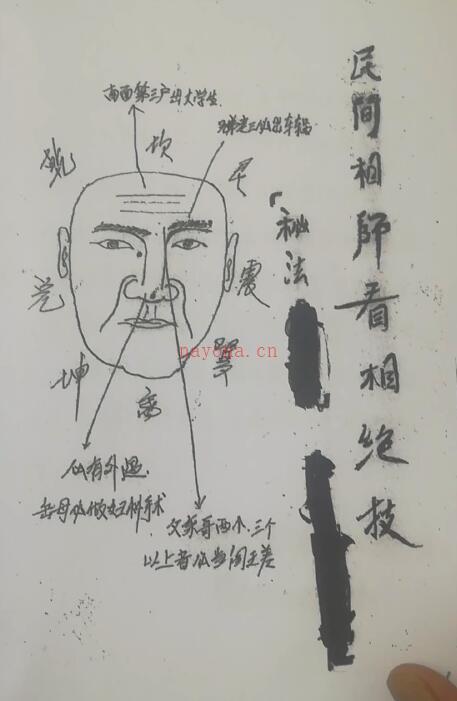 民間相師看相绝技
「秘法
南面第三户出大学生
兄弟老三仙出车祸
乾
坎
艮
兑
震
坤
離
巽
nayona.cn
仙有外遇
岳母仙做妇科手术
父亲哥两个、三个
以上者仙当阎王差